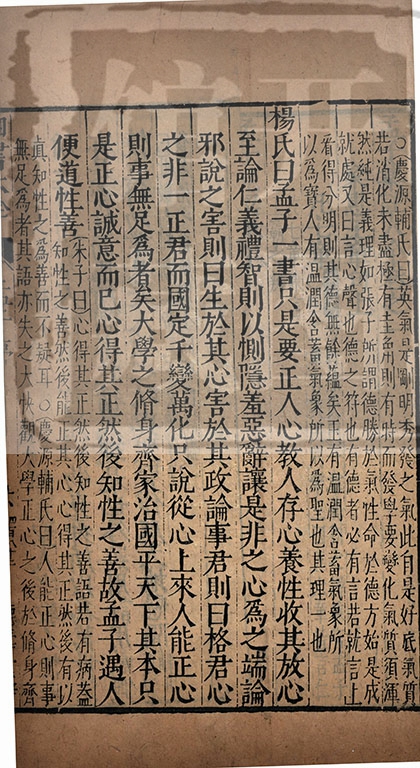 ○慶源輔氏曰英氣是剛明秀發之氣此自是好底氣質
若消化未盡猶有圭角則有時而發學要變化氣質須渾
然純是義理如張子所謂德勝於氣性命於德方始是成
就處又曰言心聲也德之符也有德者必有言若就言上
看得分明則其德無餘蘊矣玉有溫潤含蓄氣象所
以為寶人有溫潤含蓄氣象所以為聖也其理一也
楊氏曰孟子一書只是要正人心教人存心養性收其放心
至論仁義禮智則以惻隱羞惡辭讓是非之心為之端論
邪說之害則曰生於其心害於其政論事君則曰格君心
之非一正君而國定千變萬化只說從心上來人能正心
則事無足爲者矣大學之脩身齊家治國平天下其本只
是正心誠意而已心得其正然後知性之善故孟子遇人
便道性善
朱子曰心得其正然後知性之善語若有病蓋
知性之善然後能正其心心得其正然後有以
真知性之爲善而不疑耳○慶源輔氏曰人能正心則事
無足爲者其語亦失之大快觀大學正心之後於脩身齊